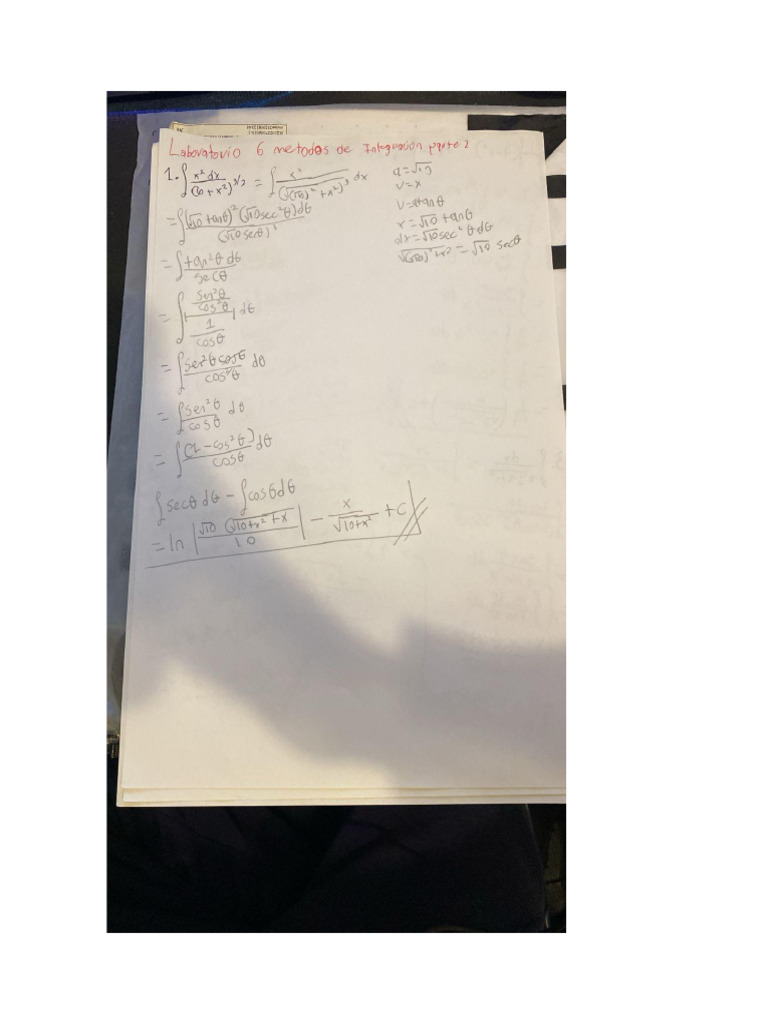 Laboratorio 6 metodos de Integración parte 2
1. ∫ x² dx / (10 + x²)^3/2 = ∫ x² / (√(√10)² + x²)³ dx
a = √10
v = x
v = a tan θ
x = √10 tan θ
dx = √10 sec² θ dθ
√(√10)² + x² = √10 sec θ
= ∫ (√10 tan θ)² (√10 sec² θ) dθ / (√10 sec θ)³
= ∫ tan² θ dθ / sec θ
= ∫ (sen² θ / cos² θ) / (1 / cos θ) dθ
= ∫ sen² θ cos θ / cos² θ dθ
= ∫ sen² θ / cos θ dθ
= ∫ (1 - cos² θ) / cos θ dθ
∫ sec θ dθ - ∫ cos θ dθ
= ln | √10 (√10 + x² + x / 10 | - x / √10 + x² + C